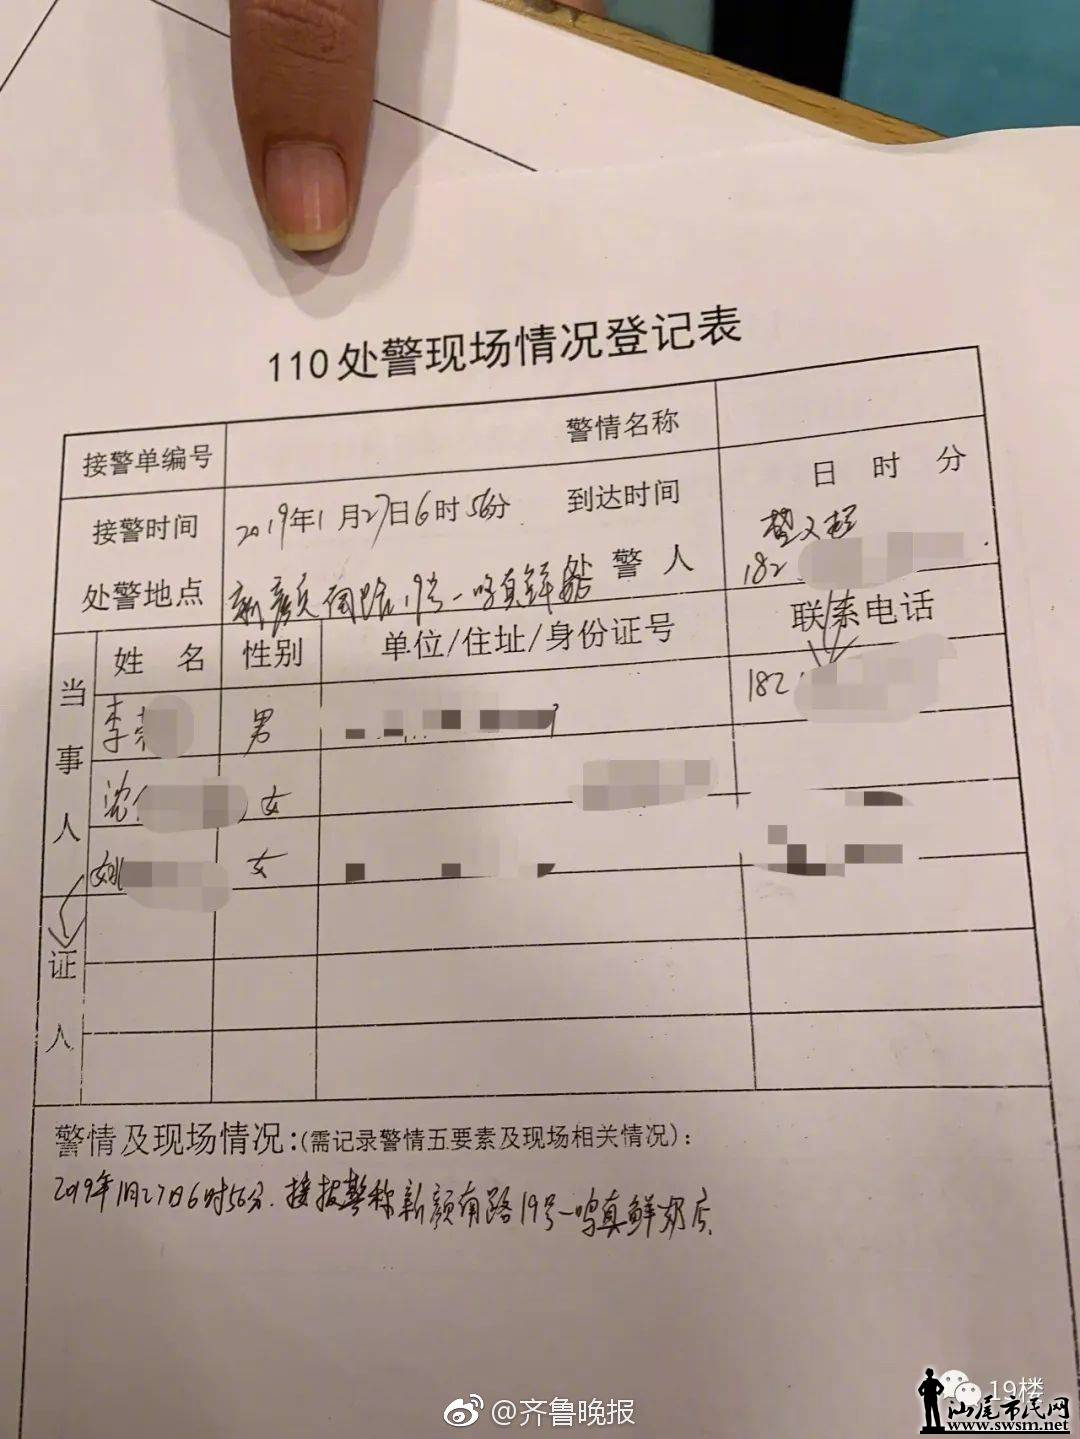 110处警现场情况登记表
接警单编号 警情名称
接警时间 2019年1月27日6时56分 到达时间 日 时 分
处警地点 新颜南路19号一鸣真鲜奶 处警人
182
当事人 姓 名 性别 单位/住址/身份证号 联系电话
李 男 182
沈 女
姚 女
证人
警情及现场情况:(需记录警情五要素及现场相关情况):
2019年1月27日6时56分.接报警称新颜南路19号一鸣真鲜奶店.
19楼
@齐鲁晚报
汕尾市民网
www.swsm.net